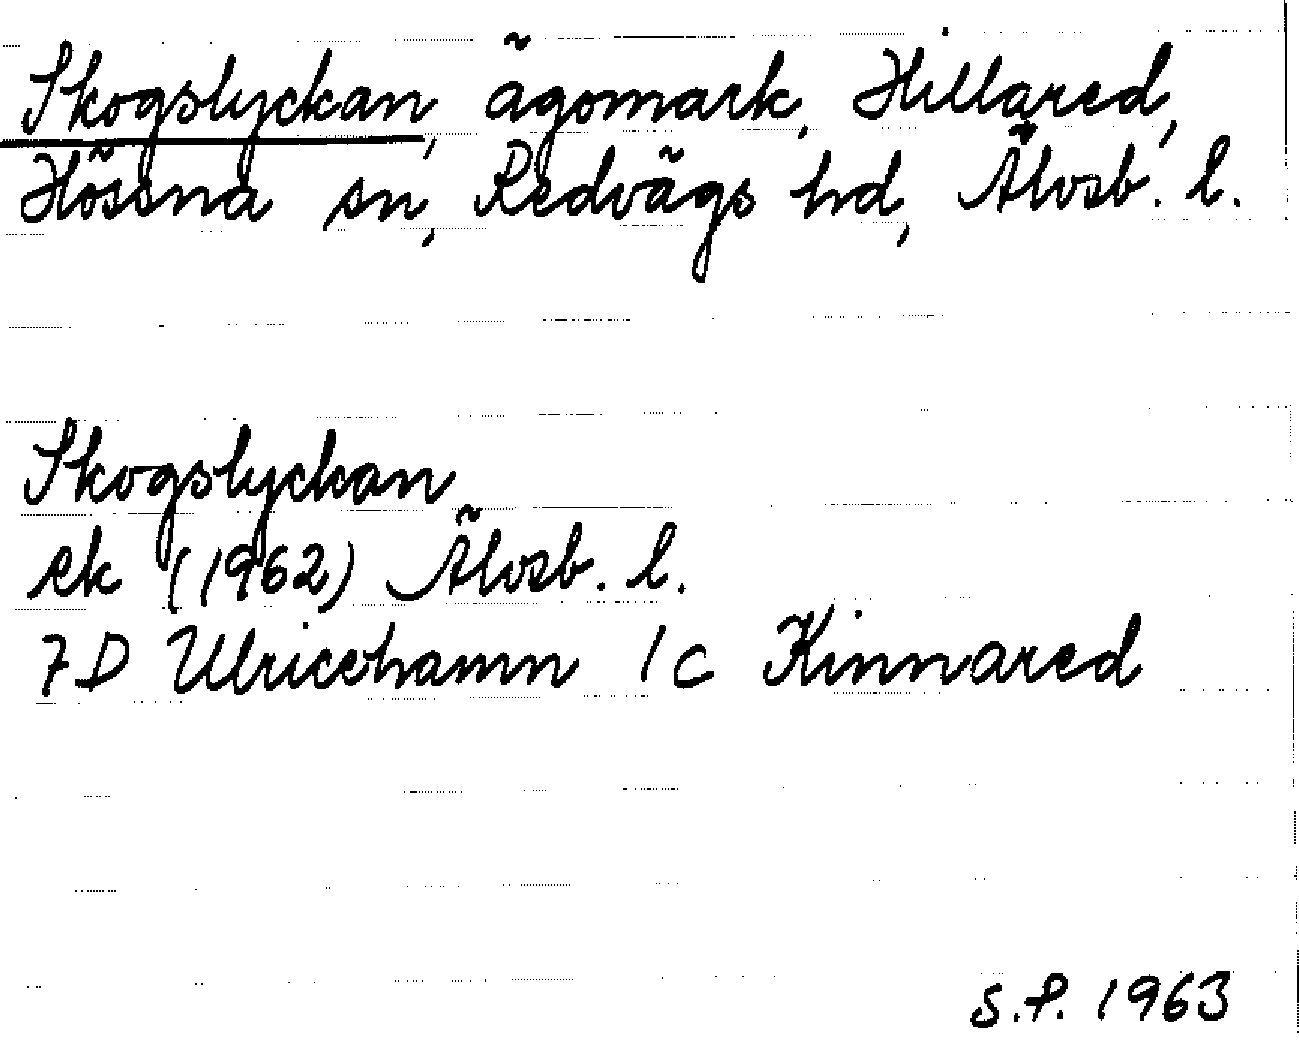 Skogslyckan, ägomark, Hillared,
Hössna sn, Redvägs hd, Älvsb. l.
Skogslyckan
ek (1962) Älvsb. l.
7D Ulricehamn 1c Kinnared
S.P. 1963